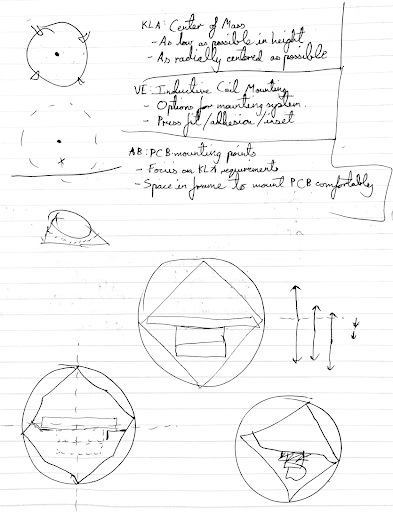 KLA: Center of Mass
- As low as possible in height
- As radially centered as possible
VE: Inductive Coil Mounting
- Options for mounting system.
- Press fit/adhesion/inset
AB: PCB mounting points
- Focus on KLA requirements
- Space in frame to mount PCB comfortably